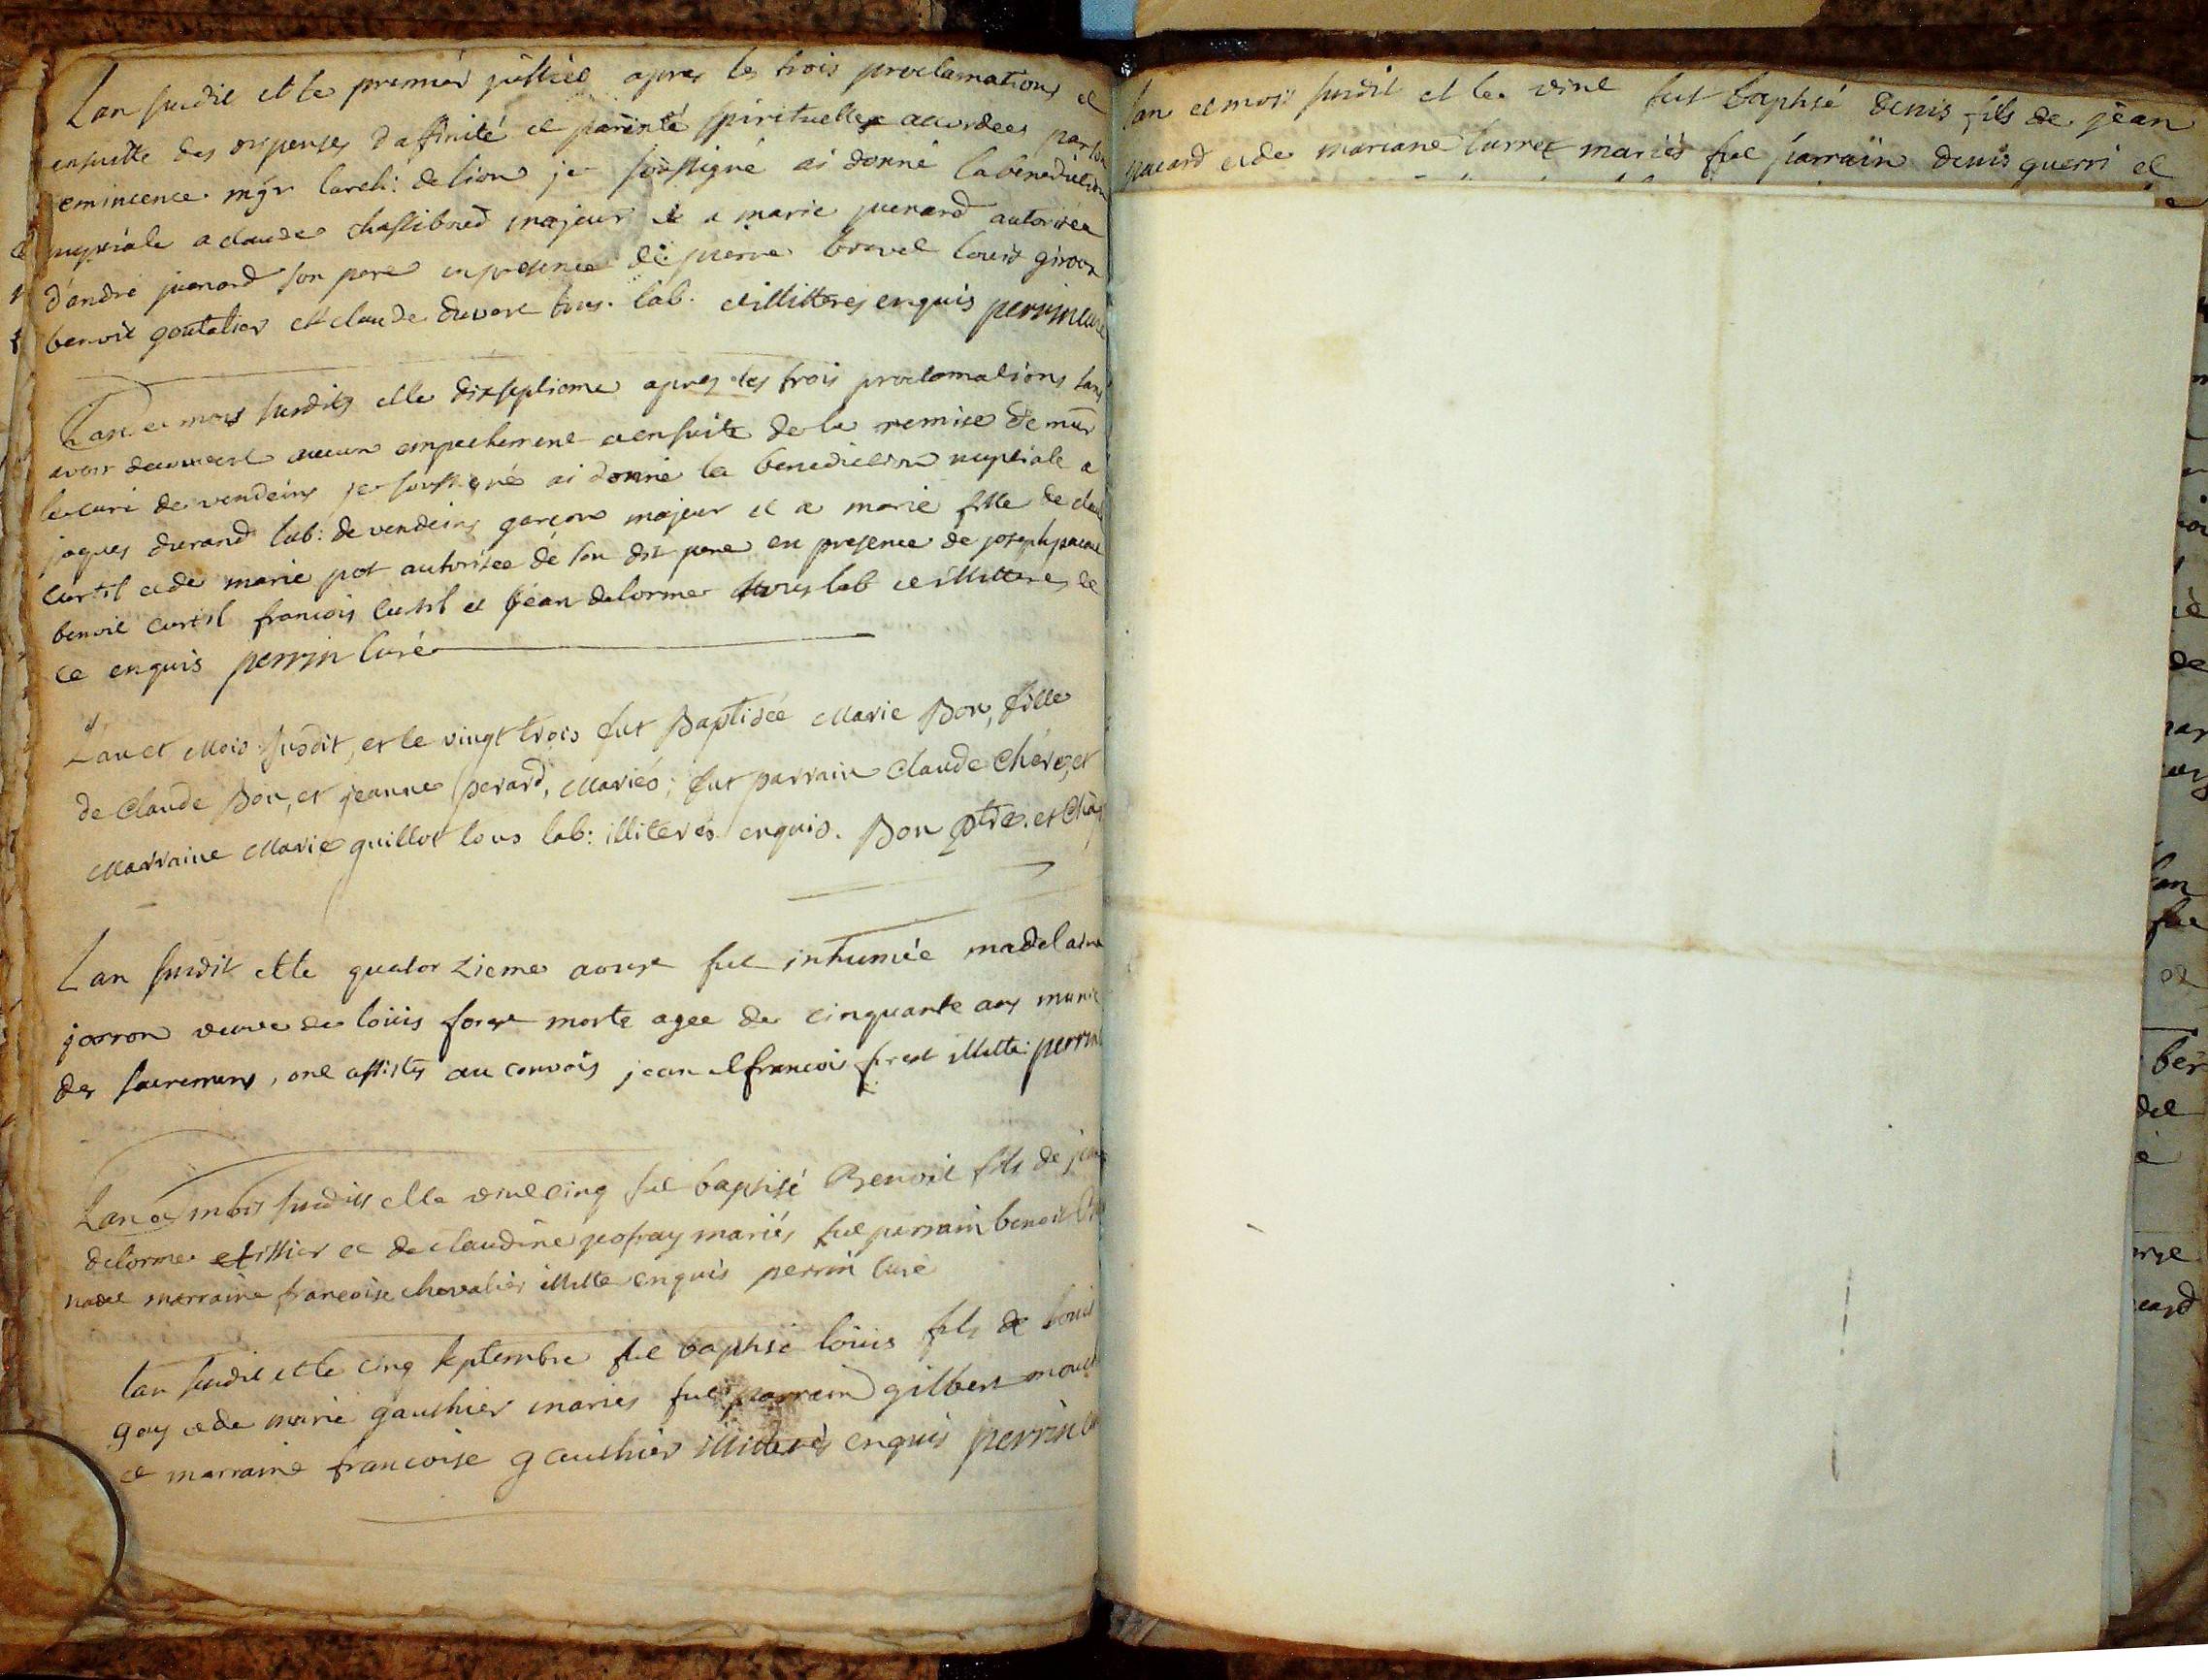 Lan susdit et le premier juillet apres les trois proclamations et
ensuitte des dispenses daffinité et parenté spirituelle accordees par son
eminence mgr larch: de lion je soussigné ai donné la benediction
nuptiale a claude chassiboud majeur et a marie juenard autorisée
d'andré juenard son pere en presence de pierre bravet louis giroux
benoit goutalier et claude duvert tous lab. et illitteres enquis perrin curé
Lan et mois susdits et le dixseptieme apres les trois proclamations sans
avoir decouvert aucun empechement et ensuite de la remise de mr
le curé de vendeins je soussigné ai donné la benediction nuptiale a
jaques durand lab: de vendeins garçon majeur et a marie fille de claude
curtil et de marie pot autorisée de son dit pere en presence de joseph pacard
benoit curtil francois curtil et jean delorme tous lab et illitteres de
ce enquis perrin curé
L'an et Mois susdit, et le vingt trois fut Baptisée Marie Bon, fille
de Claude Bon, et jeanne perard, Mariés; fut parrain Claude Chere, et
Marraine Marie guillot tous lab: illiterés enquis. Bon ptre. et
Lan susdit et le quatorzieme aoust fut inhumée madelaine
jorron veuve de loüis forest morte agee de cinquante ans munie
des sacremens, ont assistés au convois jean et francois forest illitte: perrin
Lan et mois susdits et le vint cinq fut baptisé Benoit fils de jean
delorme et de claudine pofray mariés fut parrain benoit
marraine francoise chevalier illitte enquis perrin curé
lan susdit et le cinq septembre fut baptisé loüis fils de louis
gay et de marie gauthier mariés fut parrain gilbert
et marraine francoise gauthier illitterés enquis perrin
lan et mois susdit et le vint fut baptisé denis fils de jean
pacard et de mariane curret mariés fut parrain denis guerri et